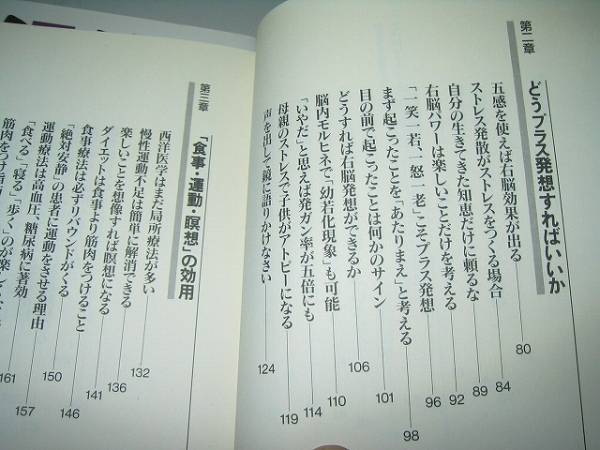 第二章
どうプラス発想すればいいか
五感を使えば右脳効果が出る 80
ストレス発散がストレスをつくる場合 84
自分の生きてきた知恵だけに頼るな 89
右脳パワーは楽しいことだけを考える 92
「一笑一若、一怒一老」こそプラス発想 96
まず起こったことを「あたりまえ」と考える 98
目の前で起こったことは何かのサイン 101
どうすれば右脳発想ができるか 106
脳内モルヒネで「幼若化現象」も可能 110
「いやだ」と思えば発ガン率が五倍にも 114
母親のストレスで子供がアトピーになる 119
声を出して鏡に語りかけなさい 124
第三章
「食事・運動・瞑想」の効用
西洋医学はまだ局所療法が多い 132
慢性運動不足は簡単に解消できる 136
楽しいことを想像すれば瞑想になる 141
ダイエットは食事より筋肉をつけること 146
食事療法は必ずリバウンドがくる 150
「絶対安静」の患者に運動をさせる理由 157
運動療法は高血圧、糖尿病に著効 161
「食べる」「寝る」「歩く」のが楽し
筋肉をつ